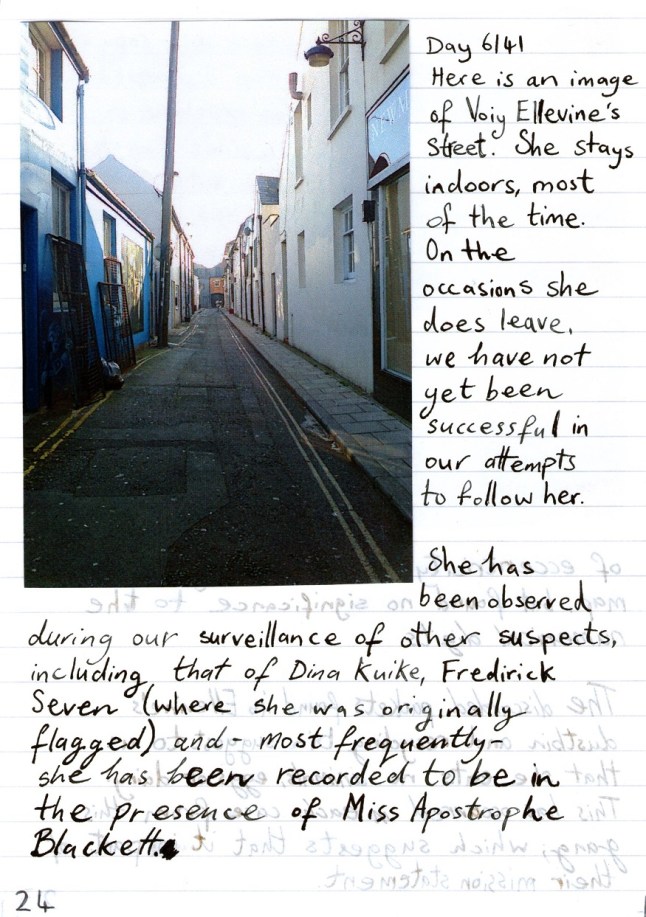 Day 6/41
Here is an image
of Voiy Ellevine's
Street. She stays
indoors, most
of the time.
On the
occasions she
does leave,
we have not
yet been
successful in
our attempts
to follow her.
She has
been observed
during our surveillance of other suspects,
including that of Dina Kuike, Fredirick
Seven (where she was originally
flagged) and - most frequently-
she has been recorded to be in
the presence of Miss Apostrophe
Blackett.
24